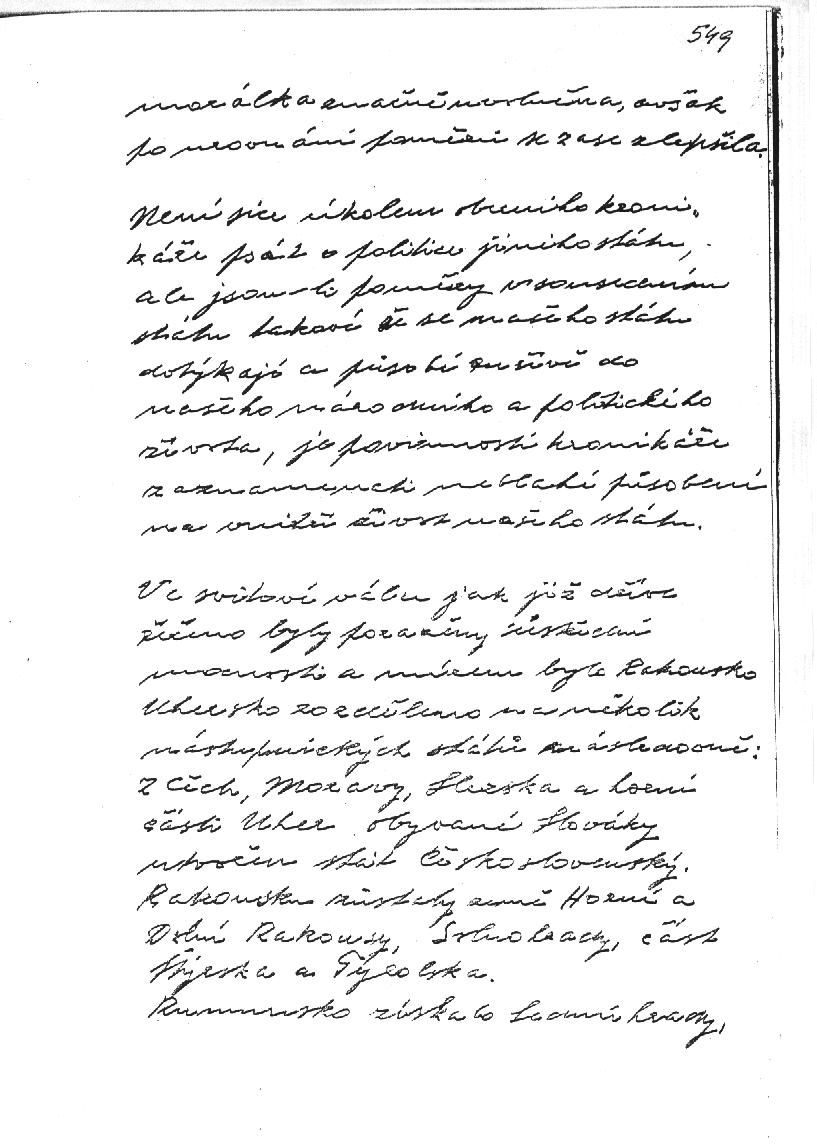 549
morálka značně uvolněna, avšak
po urovnání poměrů se zase zlepšila.
Není sice úkolem obecního kroni-
káře psát o politice jiného státu,
ale jsou-li poměry v sousedním
státu takové že se našeho státu
dotýkají a působí rušivě do
našeho národního a politického
života, je povinností kronikáře
zaznamenati neblahé působení
na vnitř. život našeho státu.
Ve světové válce jak již dříve
řečeno byly poraženy ústřední
mocnosti a mírem bylo Rakousko
Uhersko rozděleno na několik
nástupnických států následovně:
Z Čech, Moravy, Slezska a horní
části Uher obývané Slováky
utvořen stát Československý.
Rakousku zůstaly země Horní a
Dolní Rakousy, Solnohrady, část
Štýrska a Tyrolska.
Rumunsko získalo Sedmihrady,